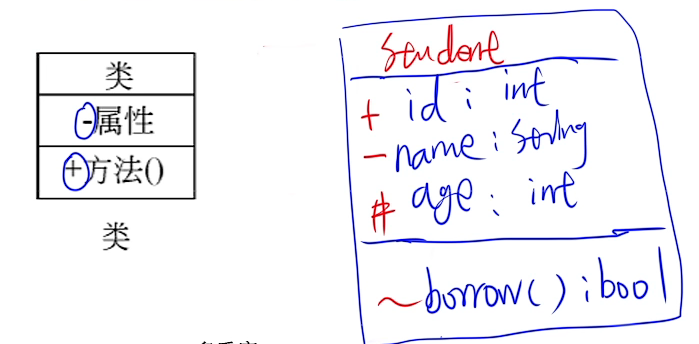 类
-属性
+方法()
类
Student
+ id : int
- name : String
# age : int
~ borrow() : bool